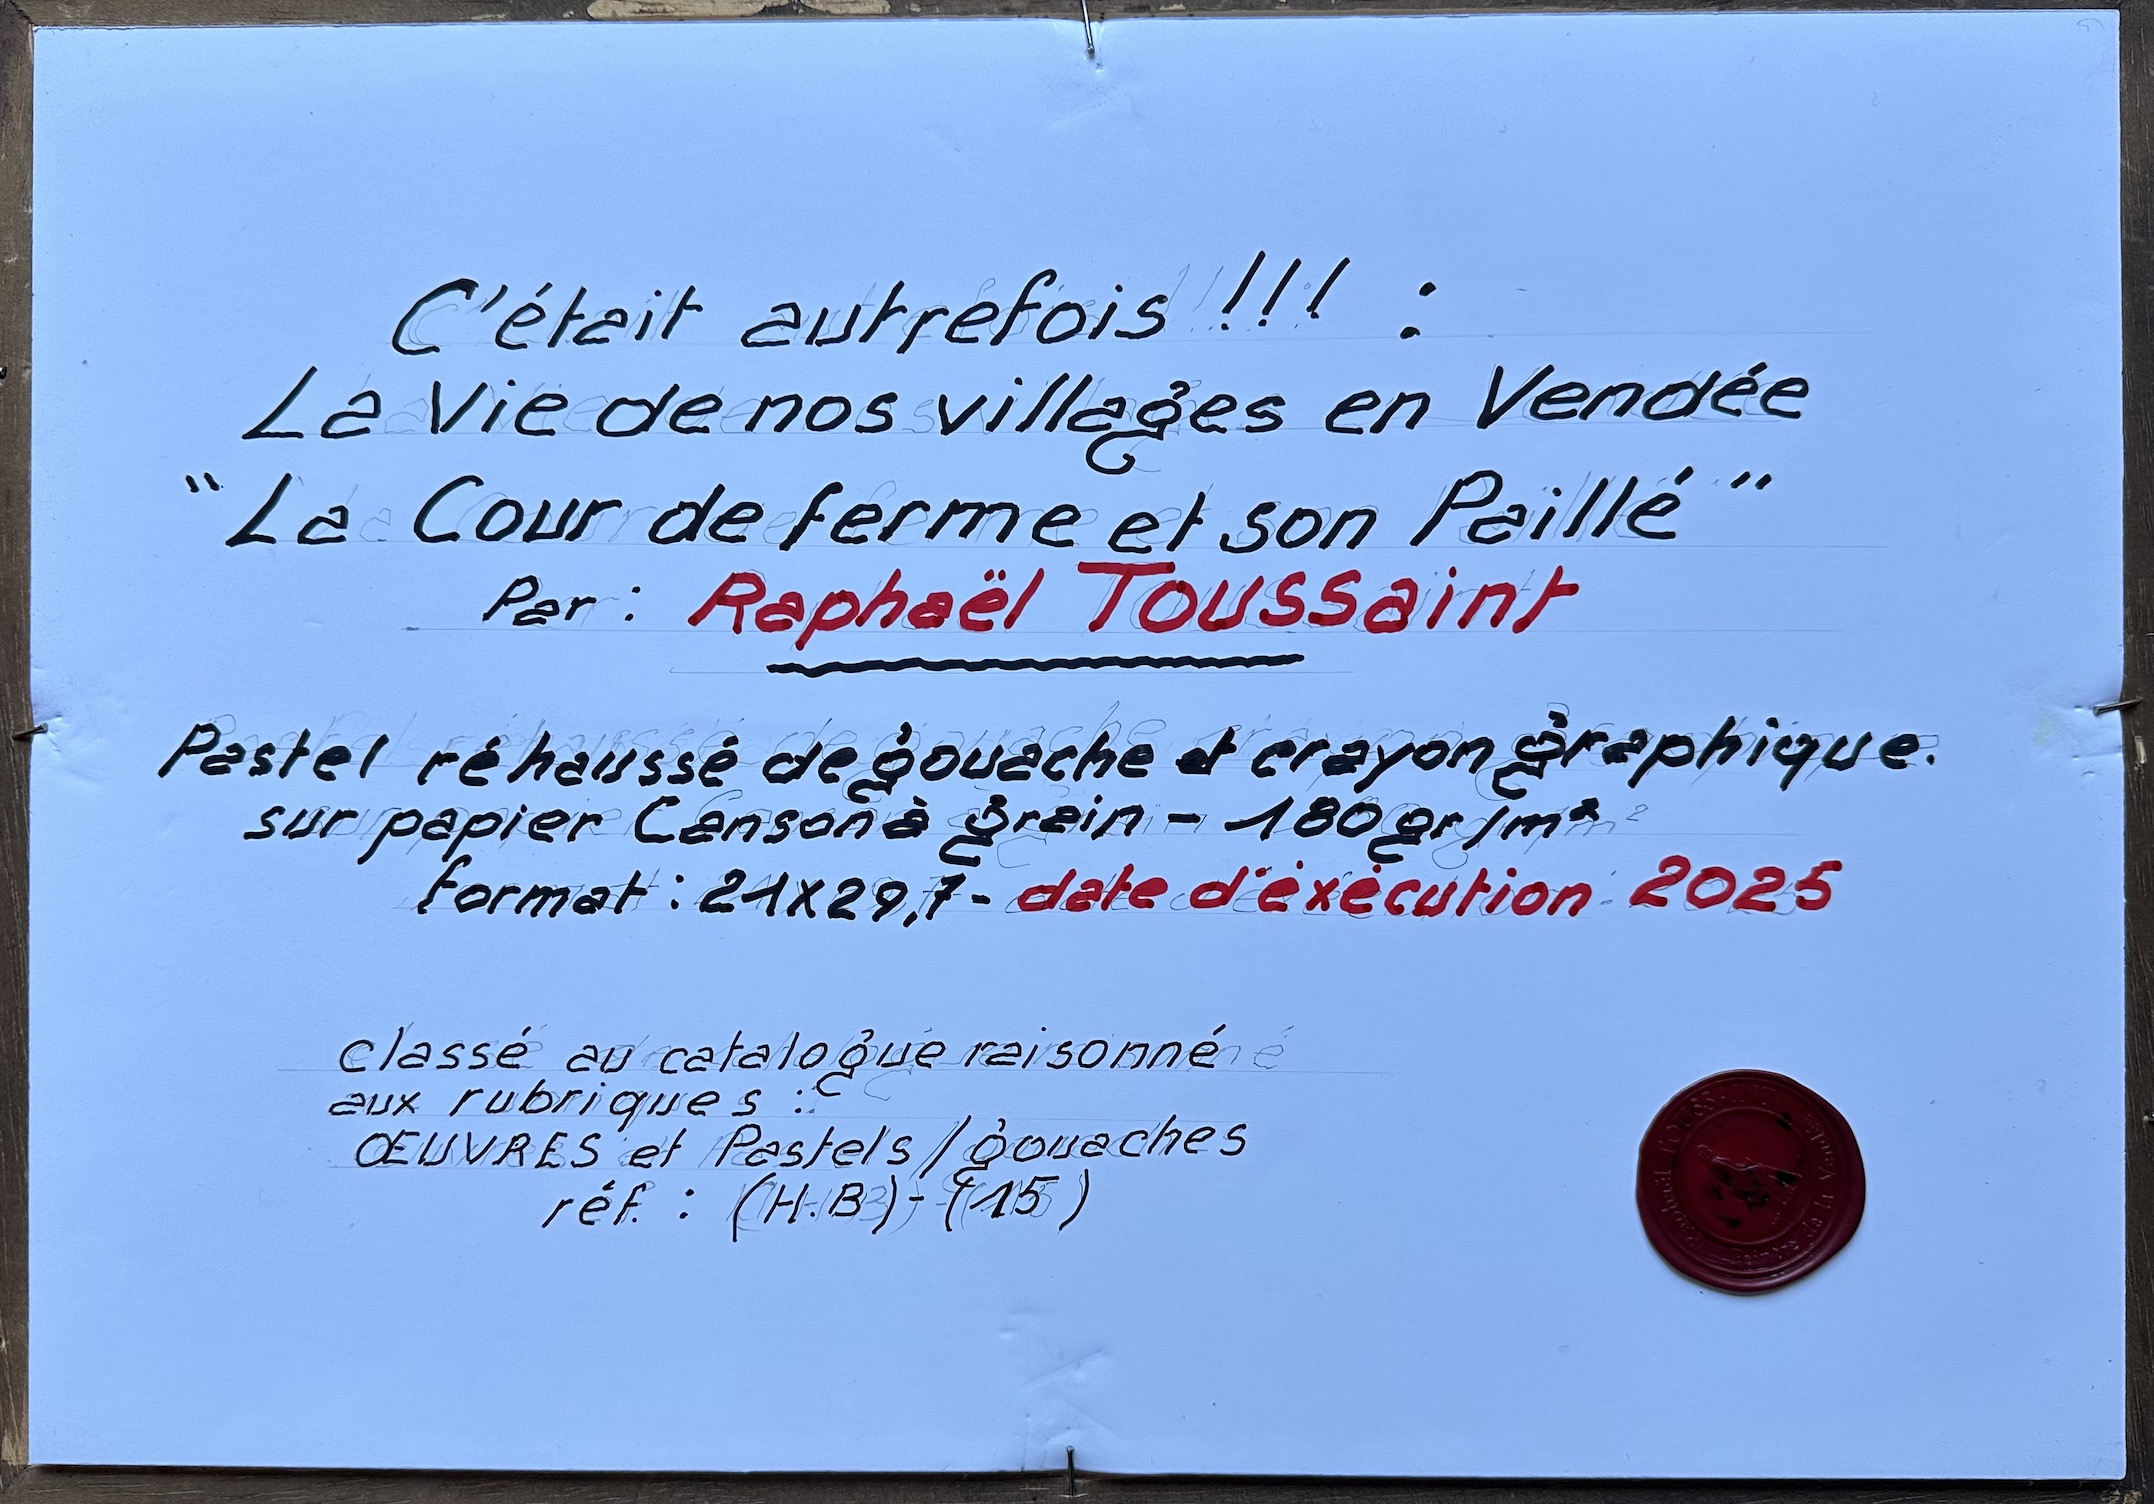 C'était autrefois !!! :
La Vie de nos villages en Vendée
"La Cour de ferme et son Paillé"
Par : Raphaël Toussaint
Pastel réhaussé de gouache et crayon graphique.
sur papier Canson à grain - 180gr/m²
format : 21x29,7 - date d'éxécution 2025
classé au catalogue raisonné
aux rubriques :
ŒUVRES et Pastels / gouaches
réf. : (H.B) - (15)